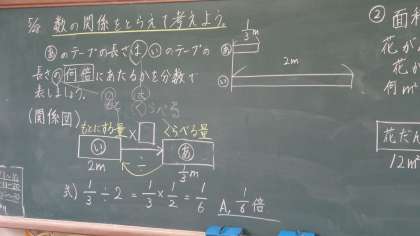 5/12 数の関係をとらえて考えよう。
あのテープの長さは いのテープの
長さの何倍にあたるかを分数で
表しましょう。
くらべる
(関係図)
もとにする量
くらべる量
い × □ あ
÷
2m
1/3m
式) 1/3÷2=1/3×1/2=1/6
A, 1/6倍
あ
1/3m
い
2m
② 面積
花が
花か
何m²
花だん
12m²